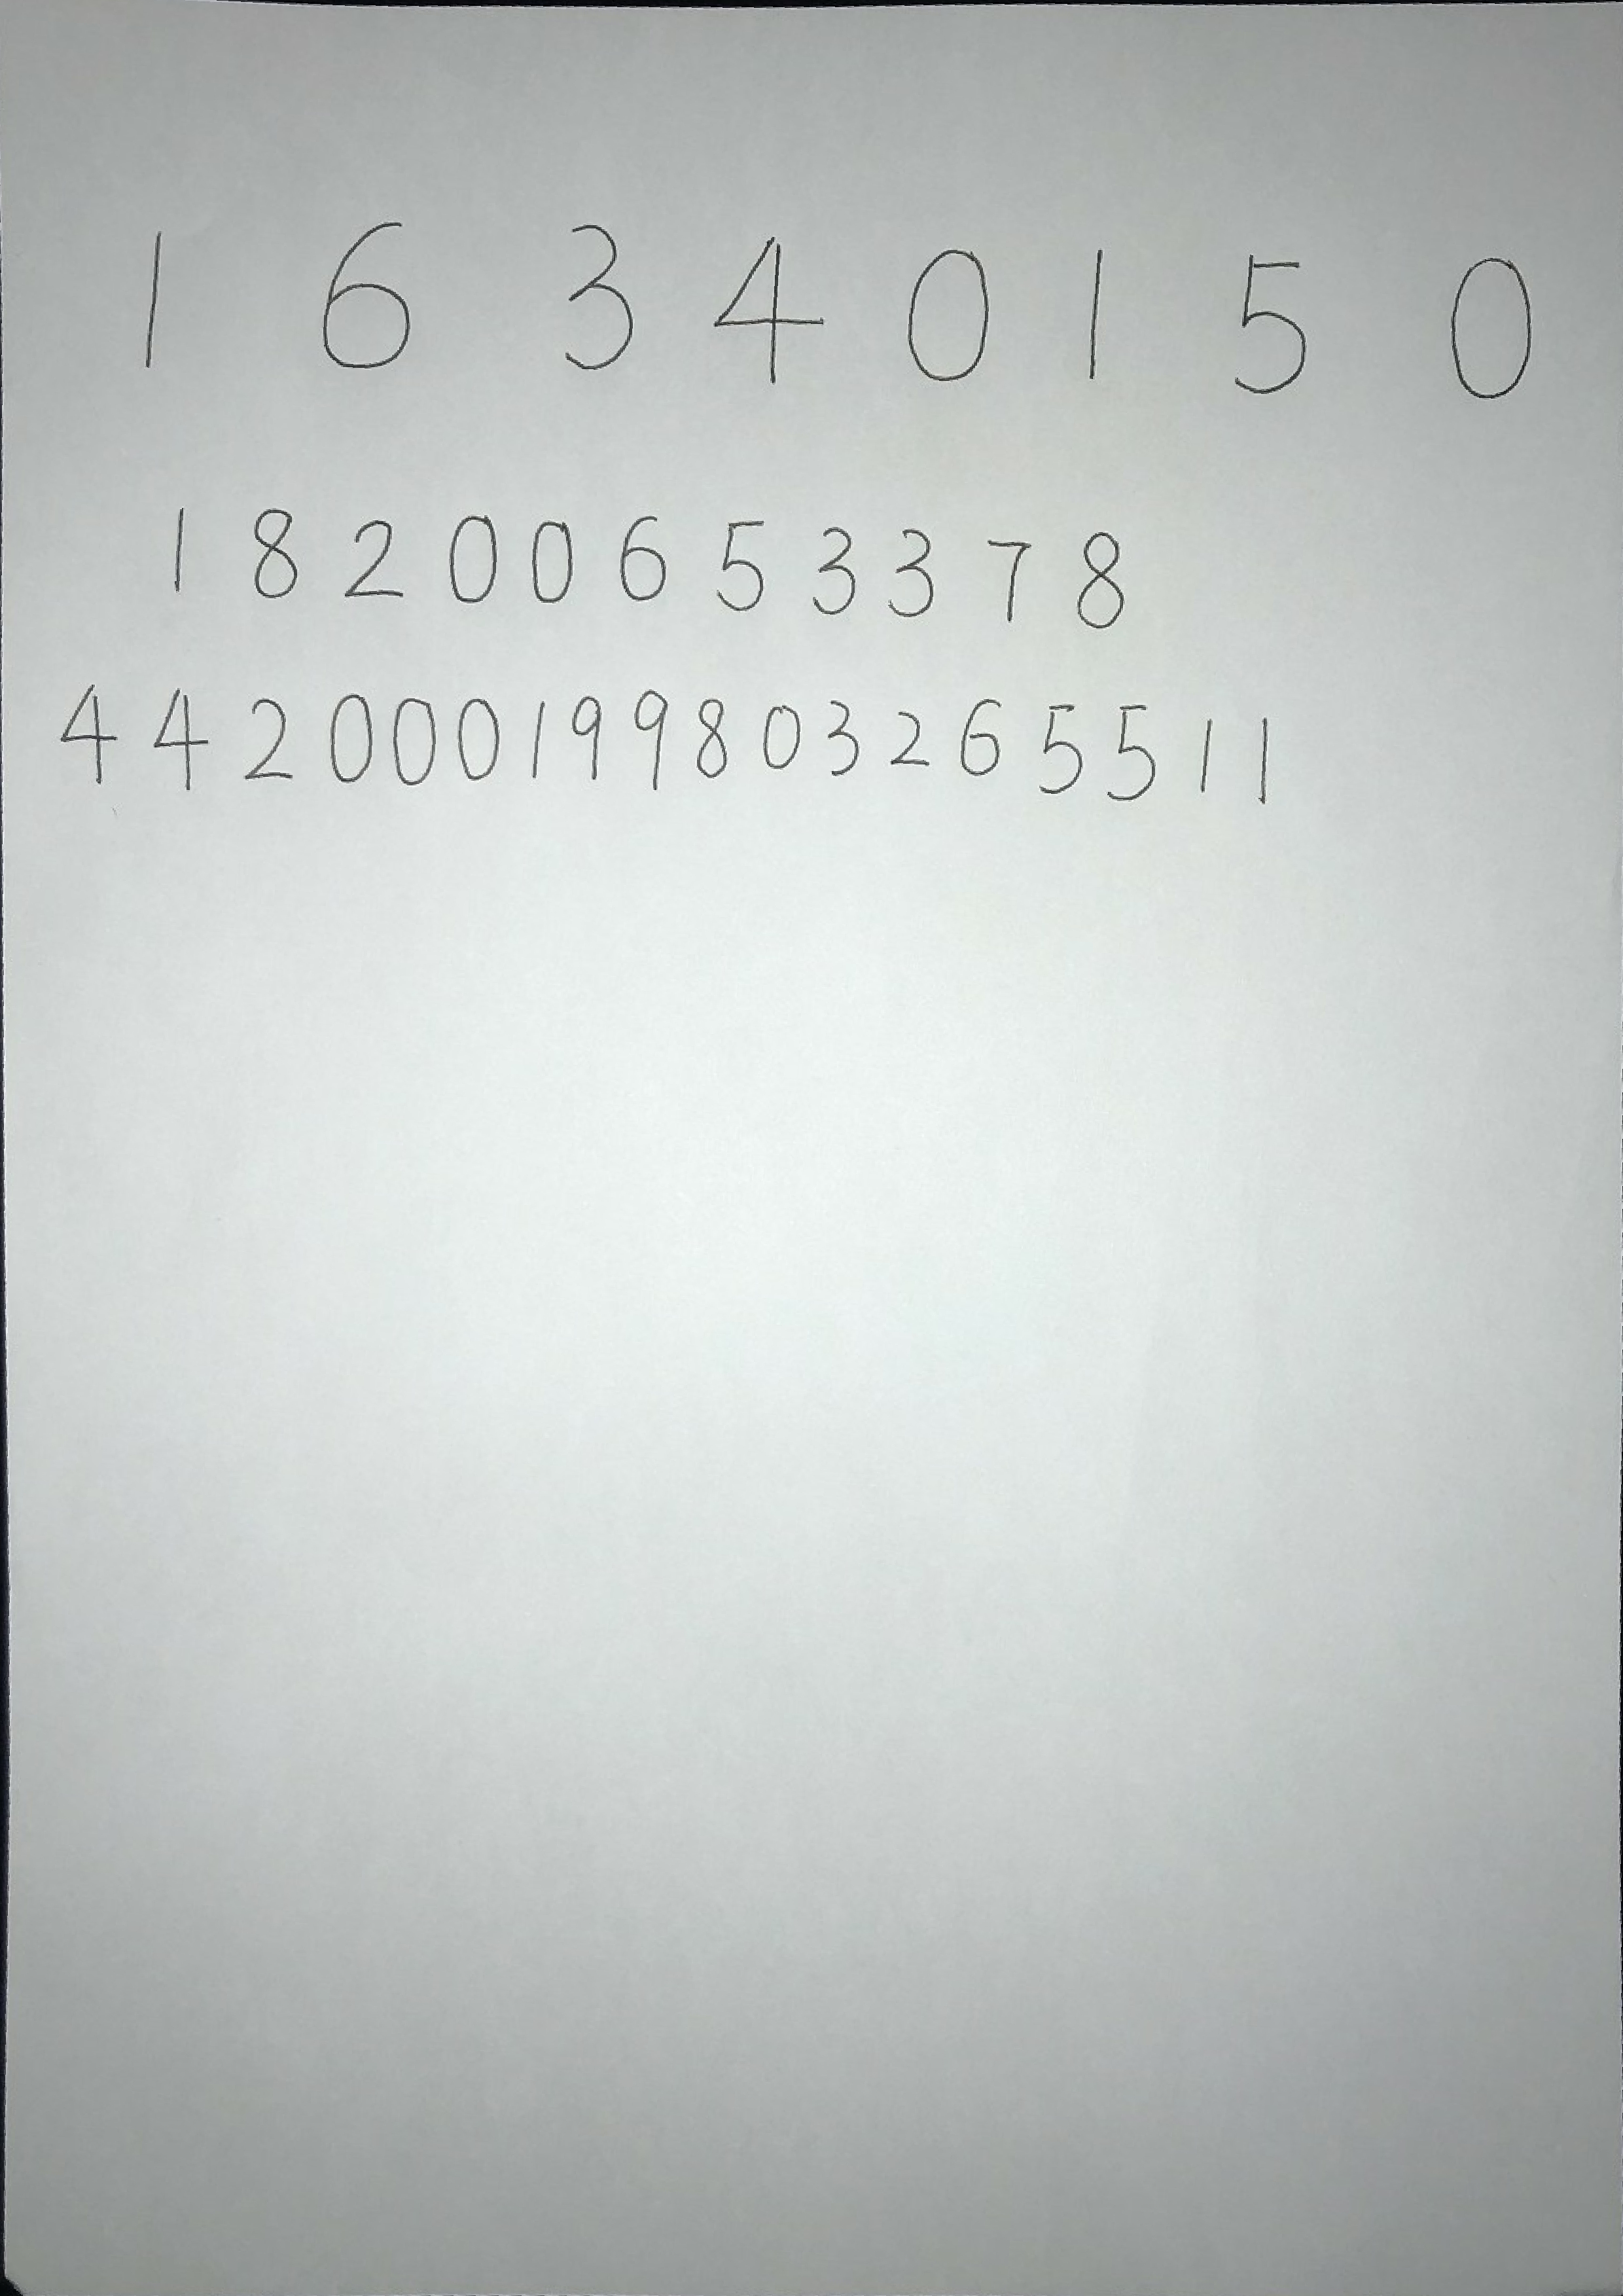 1 6 3 4 0 1 5 0
1 8 2 0 0 6 5 3 3 7 8
4 4 2 0 0 0 1 9 9 8 0 3 2 6 5 5 1 1